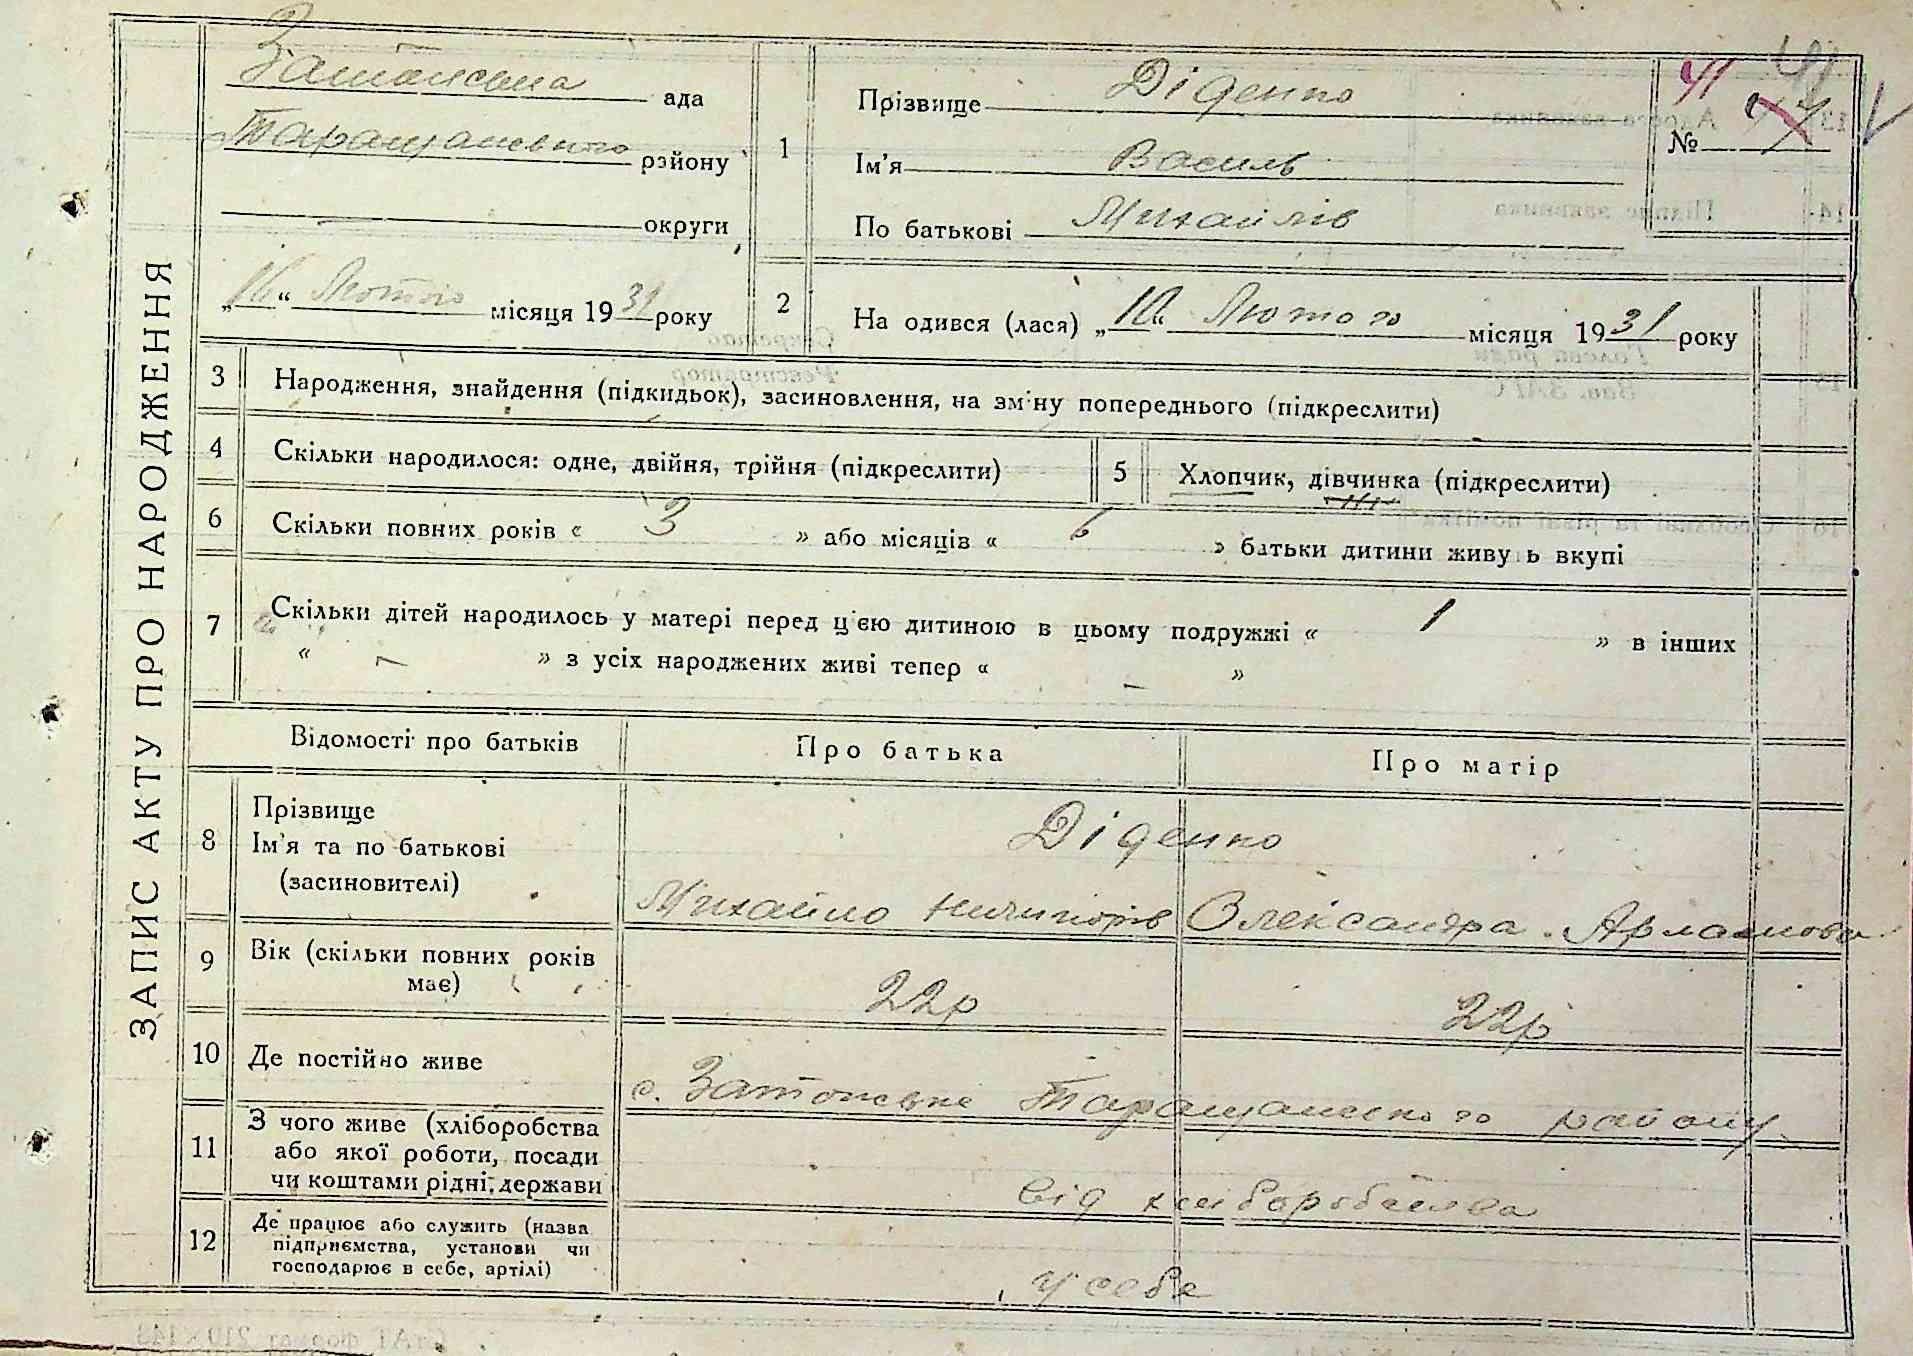 ЗАПИС АКТУ ПРО НАРОДЖЕННЯ
ада
Таращанського району
округи
„16“ Лютого місяця 1931 року
1
Прізвище Діденко
Ім'я Василь
По батькові Михайлів
41
№
2
На одився (лася) „10“ Лютого місяця 1931 року
3 Народження, знайдення (підкидьок), засиновлення, на зміну попереднього (підкреслити)
4 Скільки народилося: одне, двійня, трійня (підкреслити)
5 Хлопчик, дівчинка (підкреслити)
6 Скільки повних років « 3 » або місяців « 6 » батьки дитини живу ь вкупі
7 Скільки дітей народилось у матері перед цією дитиною в цьому подружжі « 1 » в інших
« — » з усіх народжених живі тепер « — »
Відомості про батьків
Про батька
Про матір
8 Прізвище
Ім'я та по батькові
(засиновителі)
Діденко
Михайло Ничипорів
Олександра
9 Вік (скільки повних років
має)
22р
22р
10 Де постійно живе
с. Затонське Таращанського району
11 З чого живе (хліборобства
або якої роботи, посади
чи коштами рідні, держави
від хліборобства
12 Де працює або служить (назва
підприємства, установи чи
господарює в себе, артілі)
у себе